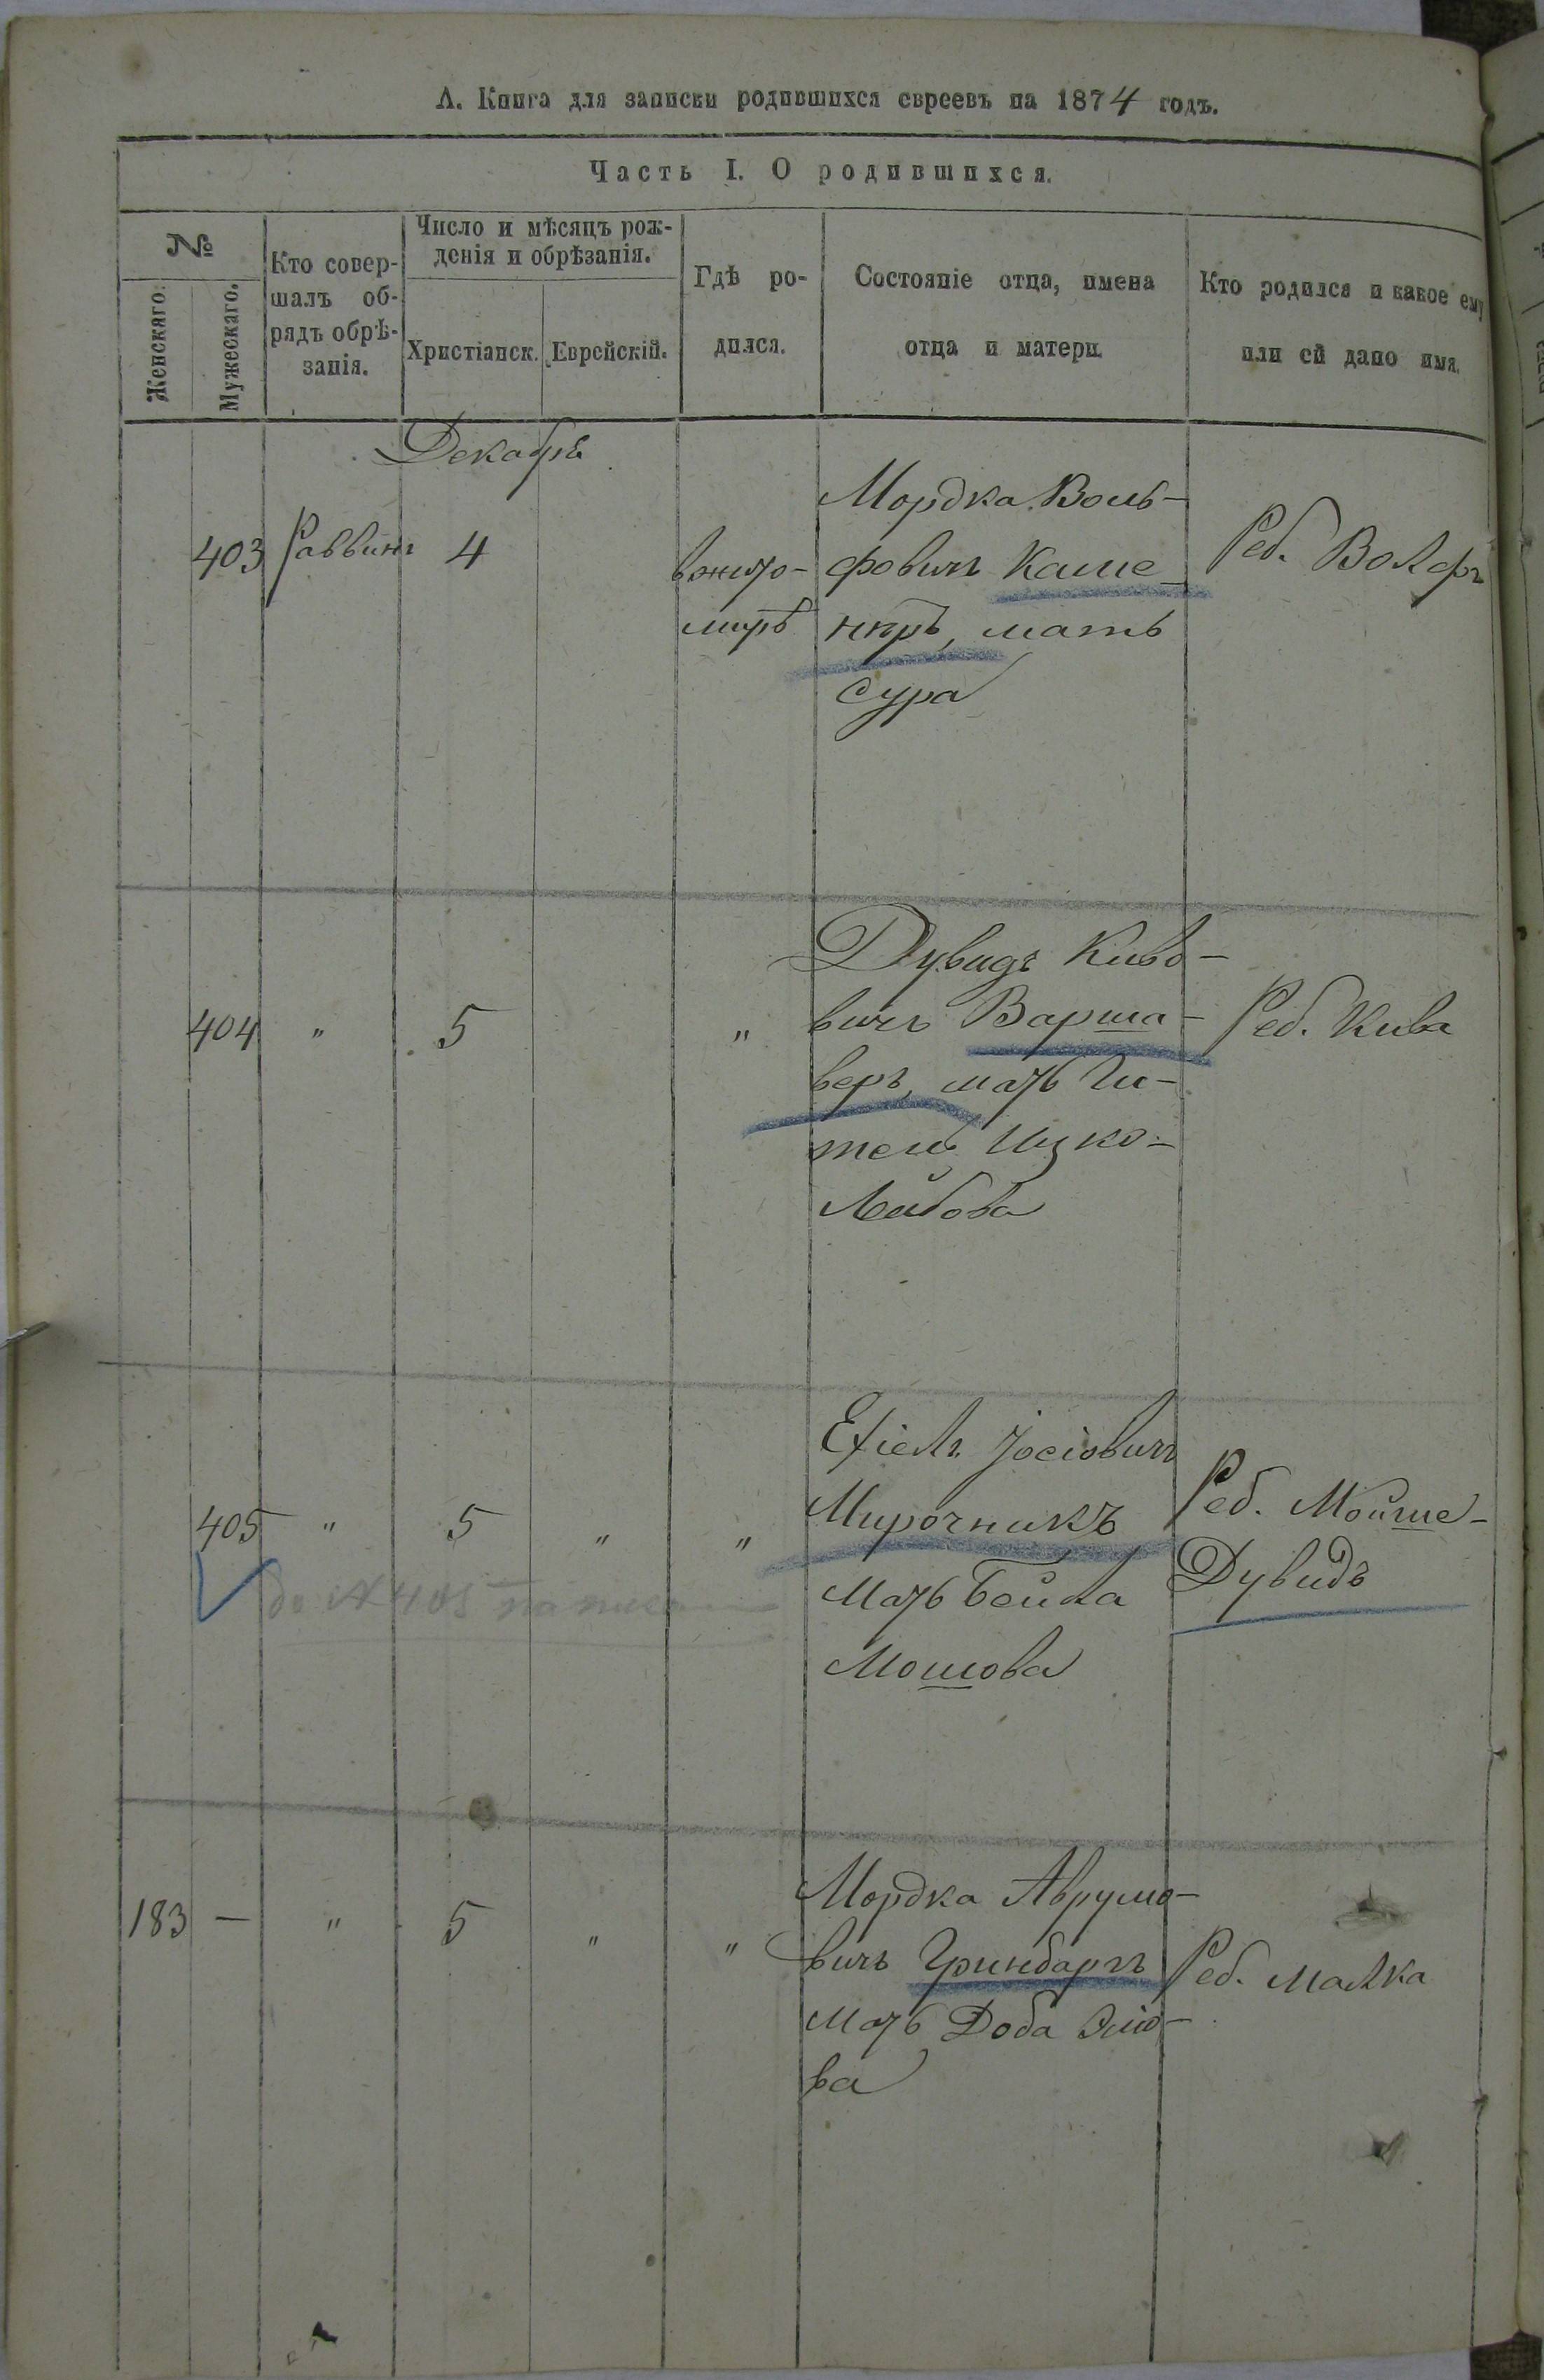 А. Книга для записки родившихся евреевъ на 1874 годъ.
Часть I. О родившихся.
№
Женскаго.
Мужескаго.
Кто совер-
шалъ об-
рядъ обрѣ-
занія.
Число и мѣсяцъ рож-
денія и обрѣзанія.
Христіанск.
Еврейскій.
Гдѣ ро-
дился.
Состояніе отца, имена
отца и матери.
Кто родился и какое ему
или ей дано имя.
Декабрь
403 Раввинъ 4
вжито-
мирѣ
Мордка Воль-
фовичъ Каше
ннръ, мать
Сура
Реб. Волфъ
404 " 5 "
Дувидъ Киво-
вичъ Варша-
веръ, мать Ги-
тель Ицко-
Лейбова
Реб. Кива
405 " 5 " "
до №405
Ехіель Іосіовичъ
Мирочникъ
мать Бейла
Мошова
Реб. Мойше-
Дувидъ
183 — " 5 " "
Мордка Аврумо-
вичъ Гринбаргъ
мать Доба Эліо-
ва
Реб. Малка